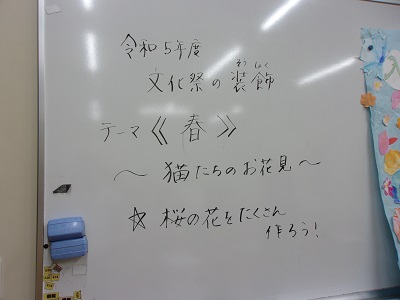 令和5年度
文化祭の装飾
そうしょく
テーマ《春》
～猫たちのお花見～
☆桜の花をたくさん
作ろう!